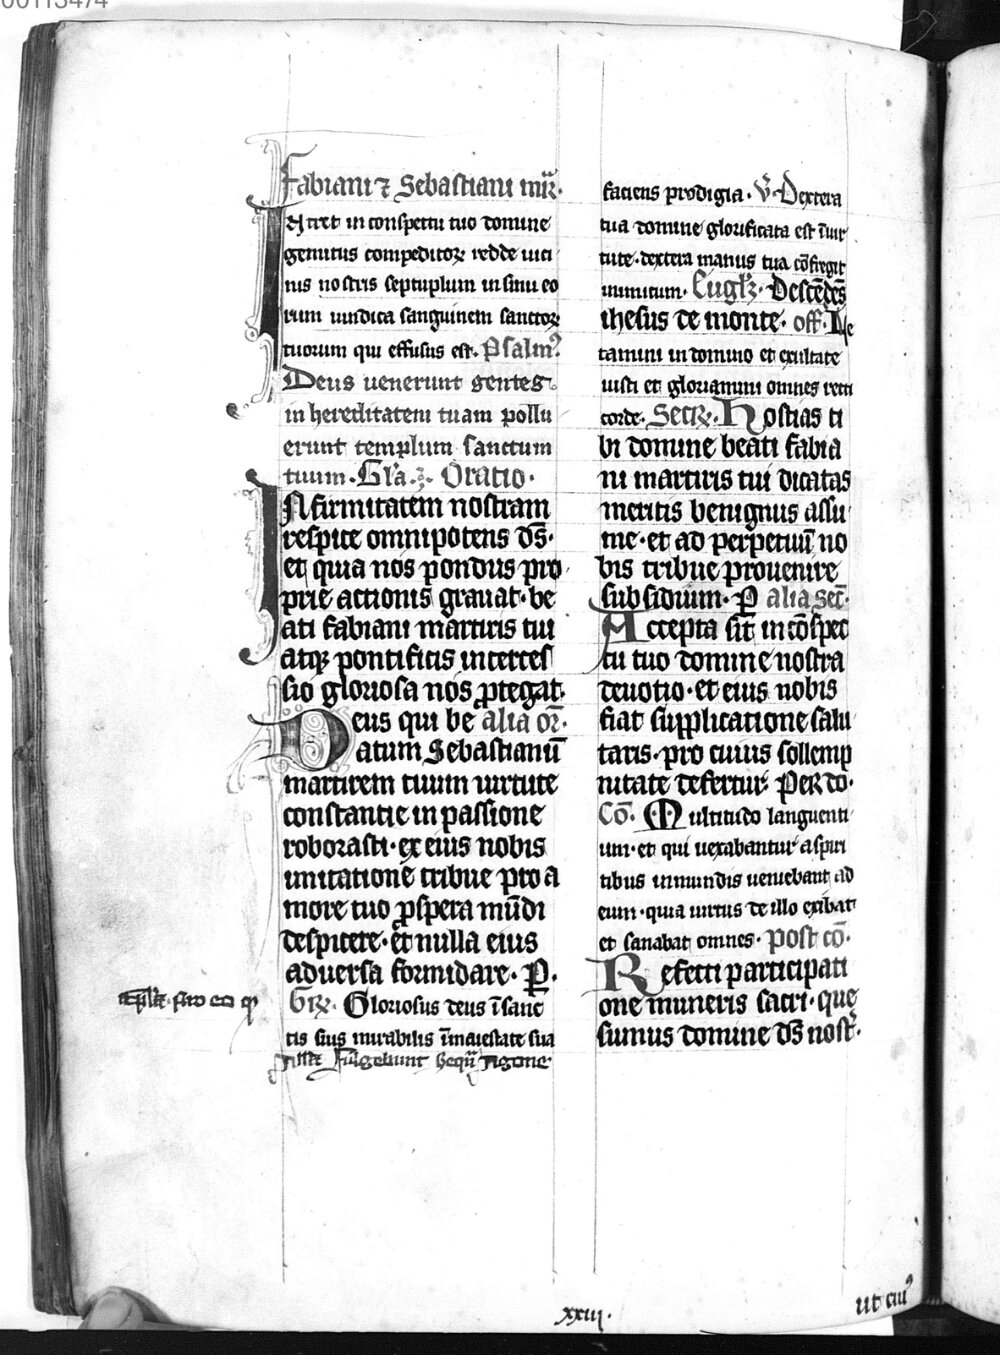 00113474
Fabiani ⁊ Sebastiani mr̄.
Intret in conspectu tuo domine
gemitus compeditoꝝ redde uici
nis nostris septuplum in sinu eo
rum uindica sanguinem sanctoꝝ
tuorum qui effusus est. Psalmꝰ
Deus uenerunt gentes
in hereditatem tuam pollu
erunt templum sanctum
tuum. Gl'a. Oratio.
Infirmitatem nostram
respice omnipotens ds̄.
et quia nos pondus pro
prie actionis grauat. be
ati fabiani martiris tui
atqꝫ pontificis interces
sio gloriosa nos ꝓtegat.
Deus qui be alia or̄.
atum Sebastianū
martirem tuum uirtute
constantie in passione
roborasti. ex eius nobis
imitatione tribue pro a
more tuo ꝓspera mūdi
despicere. et nulla eius
aduersa formidare. P.
Gr̄. Gloriosus deus ī sanc
tis suis mirabilis ī maiestate sua
fulgebunt
faciens prodigia. V̄. Dextera
tua domine glorificata est ī uir
tute. dextera manus tua cōfregit
inimicum. Eugl'. Descēdēs
ihesus de monte. off. Le
tamini in domino et exultate
iusti et gloriamini omnes recti
corde. Secr. Hostias ti
bi domine beati fabia
ni martiris tui dicatas
meritis benignus assu
me. et ad perpetuū no
bis tribue prouenire
subsidium. P alia sec̄.
Accepta sit in cōspec
tu tuo domine nostra
deuotio. et eius nobis
fiat supplicatione salu
taris. pro cuius sollemp
nitate defertur. Per do.
Cō. Multitudo languenti
um. et qui uexabantur a spiri
tibus inmundis ueniebant ad
eum. quia uirtus de illo exibat
et sanabat omnes. Post cō.
Refecti participati
one muneris sacri. que
sumus domine ds̄ nostr̄.
xxiii.
ut cuiꝰ